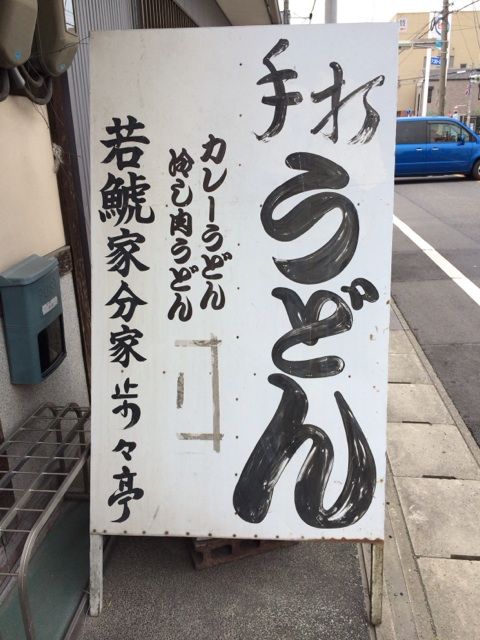 手打
うどん
カレーうどん
冷し肉うどん
若鯱家分家歩々亭